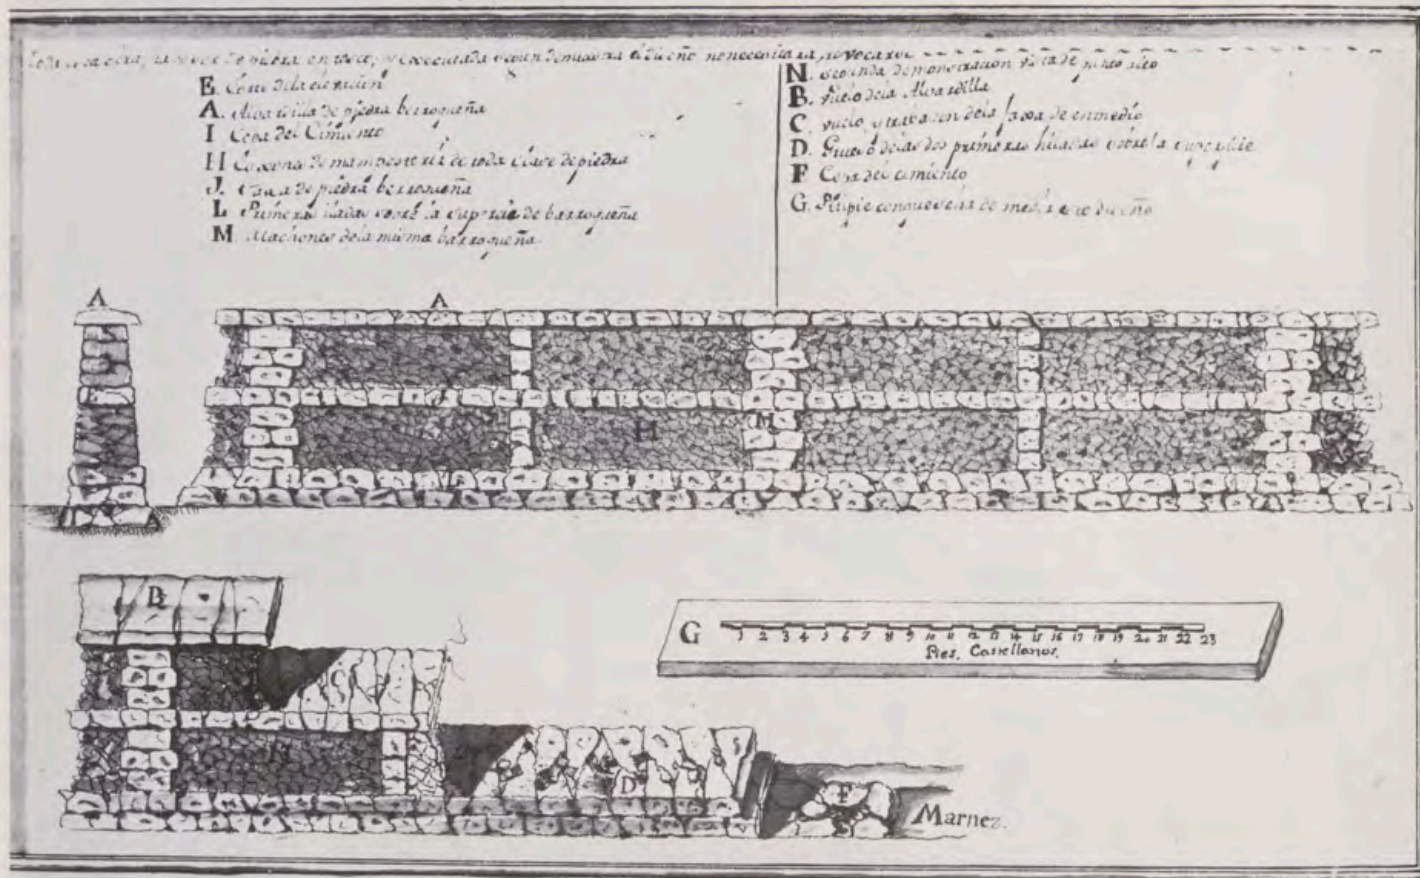 toda esta obra, de piedra en executada segun demuestra el diseño no necesitara revocarse
E. Corte dela elevacion
A. Alvardilla de piedra berroqueña
I Cepa del Cimiento
H Caxones de mamposteria de toda clase de piedra
J. Faxa de piedra berroqueña
L Primeras iladas sobre la superficie de barroqueña
M Machones dela misma barroqueña
N. Segunda demonstracion vista de punto alto
B. Vuelo dela Alvardilla
C vuelo, y travazon dela faxa de enmedio
D. Grueso delas dos primeras hiladas sobre la superficie
F Cepa del cimiento
G. Pitipie con que se ha de medir este diseño
A
A
H
M
B
G
1 2 3 4 5 6 7 8 9 10 11 12 13 14 15 16 17 18 19 20 21 22 23
Pies, Castellanos.
C
D
F
Marnez.